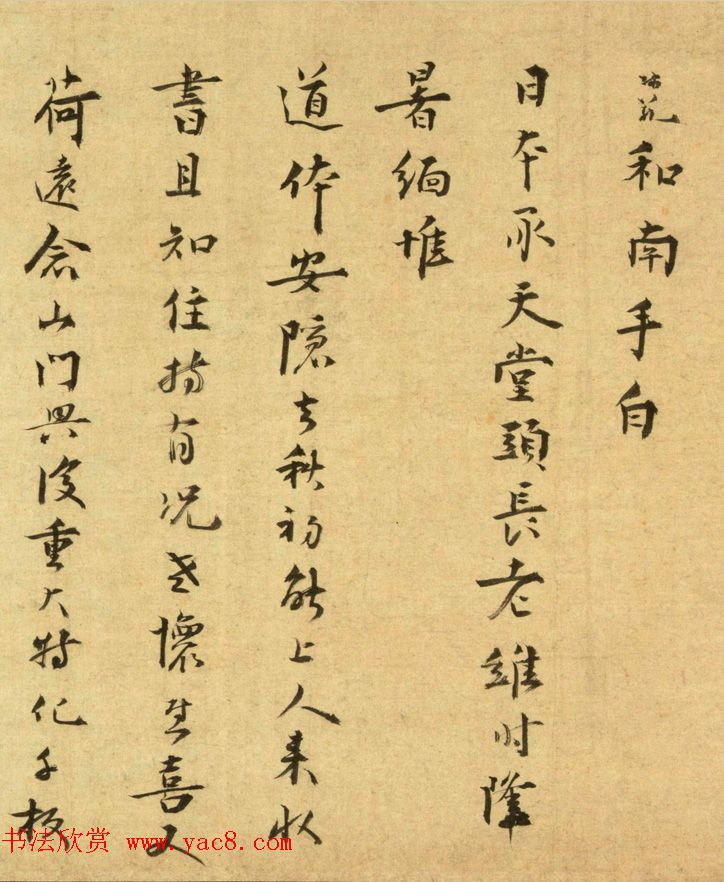 師範和南手白
日本承天堂頭長老維時隆
暑緬惟
道体安隠去秋初能上人来收
書且知住持有况老懐慰喜又
荷遠念山門興復重大特化千板
书法欣赏 www.yac8.com